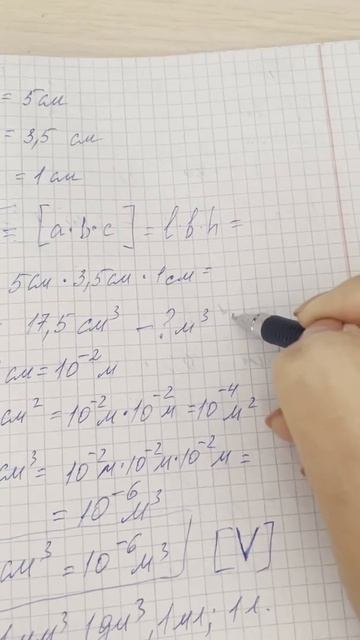 = 5 см
= 3,5 см
= 1 см
= [a·b·c] = l·b·h =
5см · 3,5см · 1см =
17,5 см³ – ? м³
см = 10⁻² м
см² = 10⁻² м · 10⁻² м = 10⁻⁴ м²
см³ = 10⁻² м · 10⁻² м · 10⁻² м =
= 10⁻⁶ м³
см³ = 10⁻⁶ м³ [V]
1 дм³, 1 мл; 1 л.